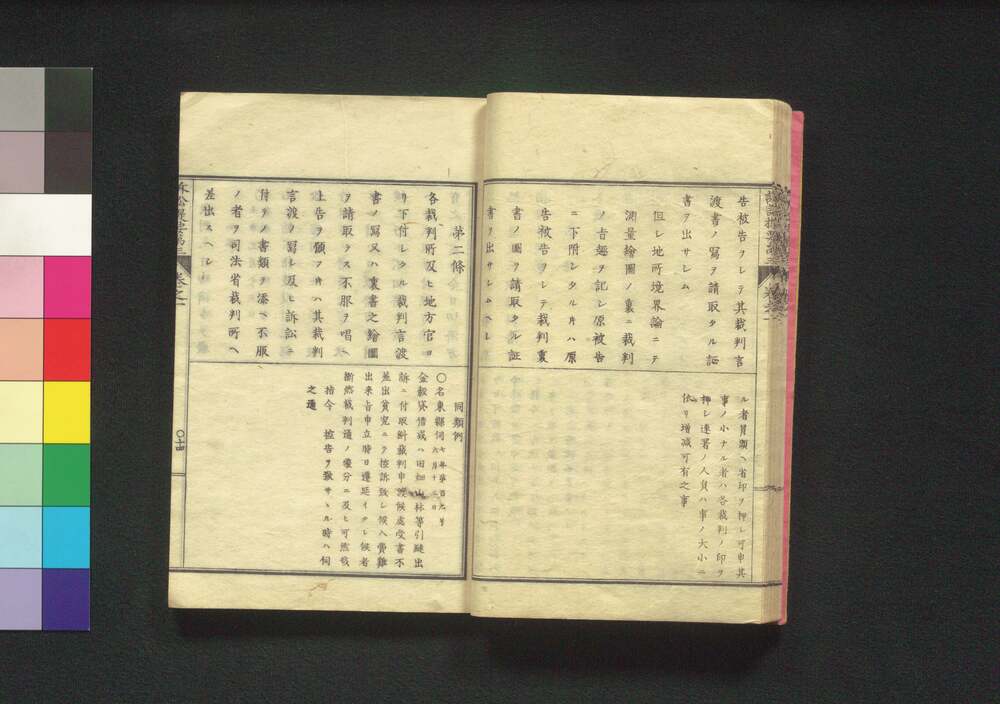 告被告ヲシテ其裁判言
渡書ノ寫ヲ請取タル証
書ヲ出サシム
但シ地所境界論ニテ
測量繪圖ノ裏ニ裁判
ノ旨趣ヲ記シ原被告
ニ下附シタル片ハ原
告被告ヲシテ裁判裏
書ノ圖ヲ請取タル証
書ヲ出サシムヘシ
ル者肩顯ヘ省印ヲ押シ可申其
事ノ小ナル者ハ各裁判ノ印ヲ
押シ連署ノ人員ハ事ノ大小ニ
依リ増减可有之事
第二條
各裁判所及ヒ地方官ヨ
リ下付シタル裁判言渡
書ノ寫又ハ裏書之繪圖
ヲ請取ラス不服ヲ唱ヘ
上告ヲ願フ片ハ其裁判
言渡ノ寫シ及ヒ訴訟ニ
付テノ書類ヲ添ヘ不服
ノ者ヲ司法省裁判所ヘ
差出スヘシ
同類例
〇名東縣伺
金穀貸借或ハ田畑山林等引縺出
訴ニ付取糾裁判申渡候處受書不
差出貧窮ニテ控訴致シ候入費難
出来旨申立時日遷延イタシ候者
斷然裁判通ノ處分ニ及ヒ可然哉
指令 控告ヲ致サヽル時ハ伺
之通
卷之一
〇十四